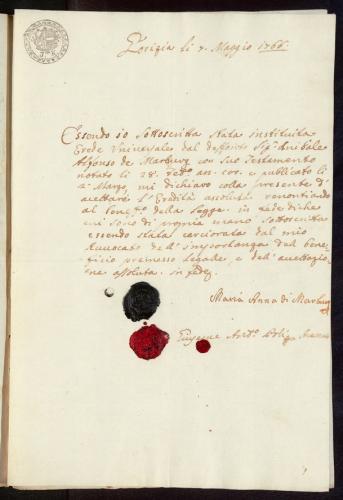 Gorizia li 7. Maggio 1766.
Essendo io Sottoscritta stata instituita
Erede Universale dal deffonto Sigr Anibale
Alfonso de Marburg con suo Testamento
notato li 28. an. cor. e publicato li
Marzo, mi dichiaro colla presente d'
accettare l'Eredità assoluta renontiando
al benefo della Legge. in fede di che
mi sono di propria mano Sottoscritta
essendo stata cerciorata dal mio
Avvocato dell'importanza del bene-
ficio premesso legale, e dell'accettazio-
ne assoluta. in fede
Maria Anna di Marburg
Eugenio